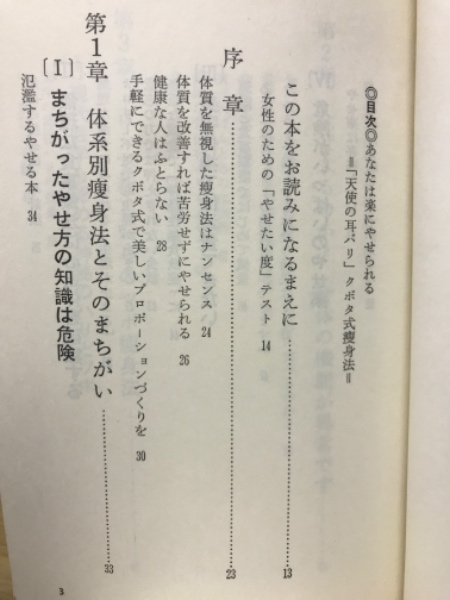 ◎目次◎あなたは楽にやせられる
＝「天使の耳バリ」クボタ式痩身法＝
この本をお読みになるまえに……………13
女性のための「やせたい度」テスト 14
序章……………23
体質を無視した痩身法はナンセンス 24
体質を改善すれば苦労せずにやせられる 26
健康な人はふとらない 28
手軽にできるクボタ式で美しいプロポーションづくりを 30
第1章 体系別痩身法とそのまちがい……………33
〔I〕まちがったやせ方の知識は危険
氾濫するやせる本 34
3